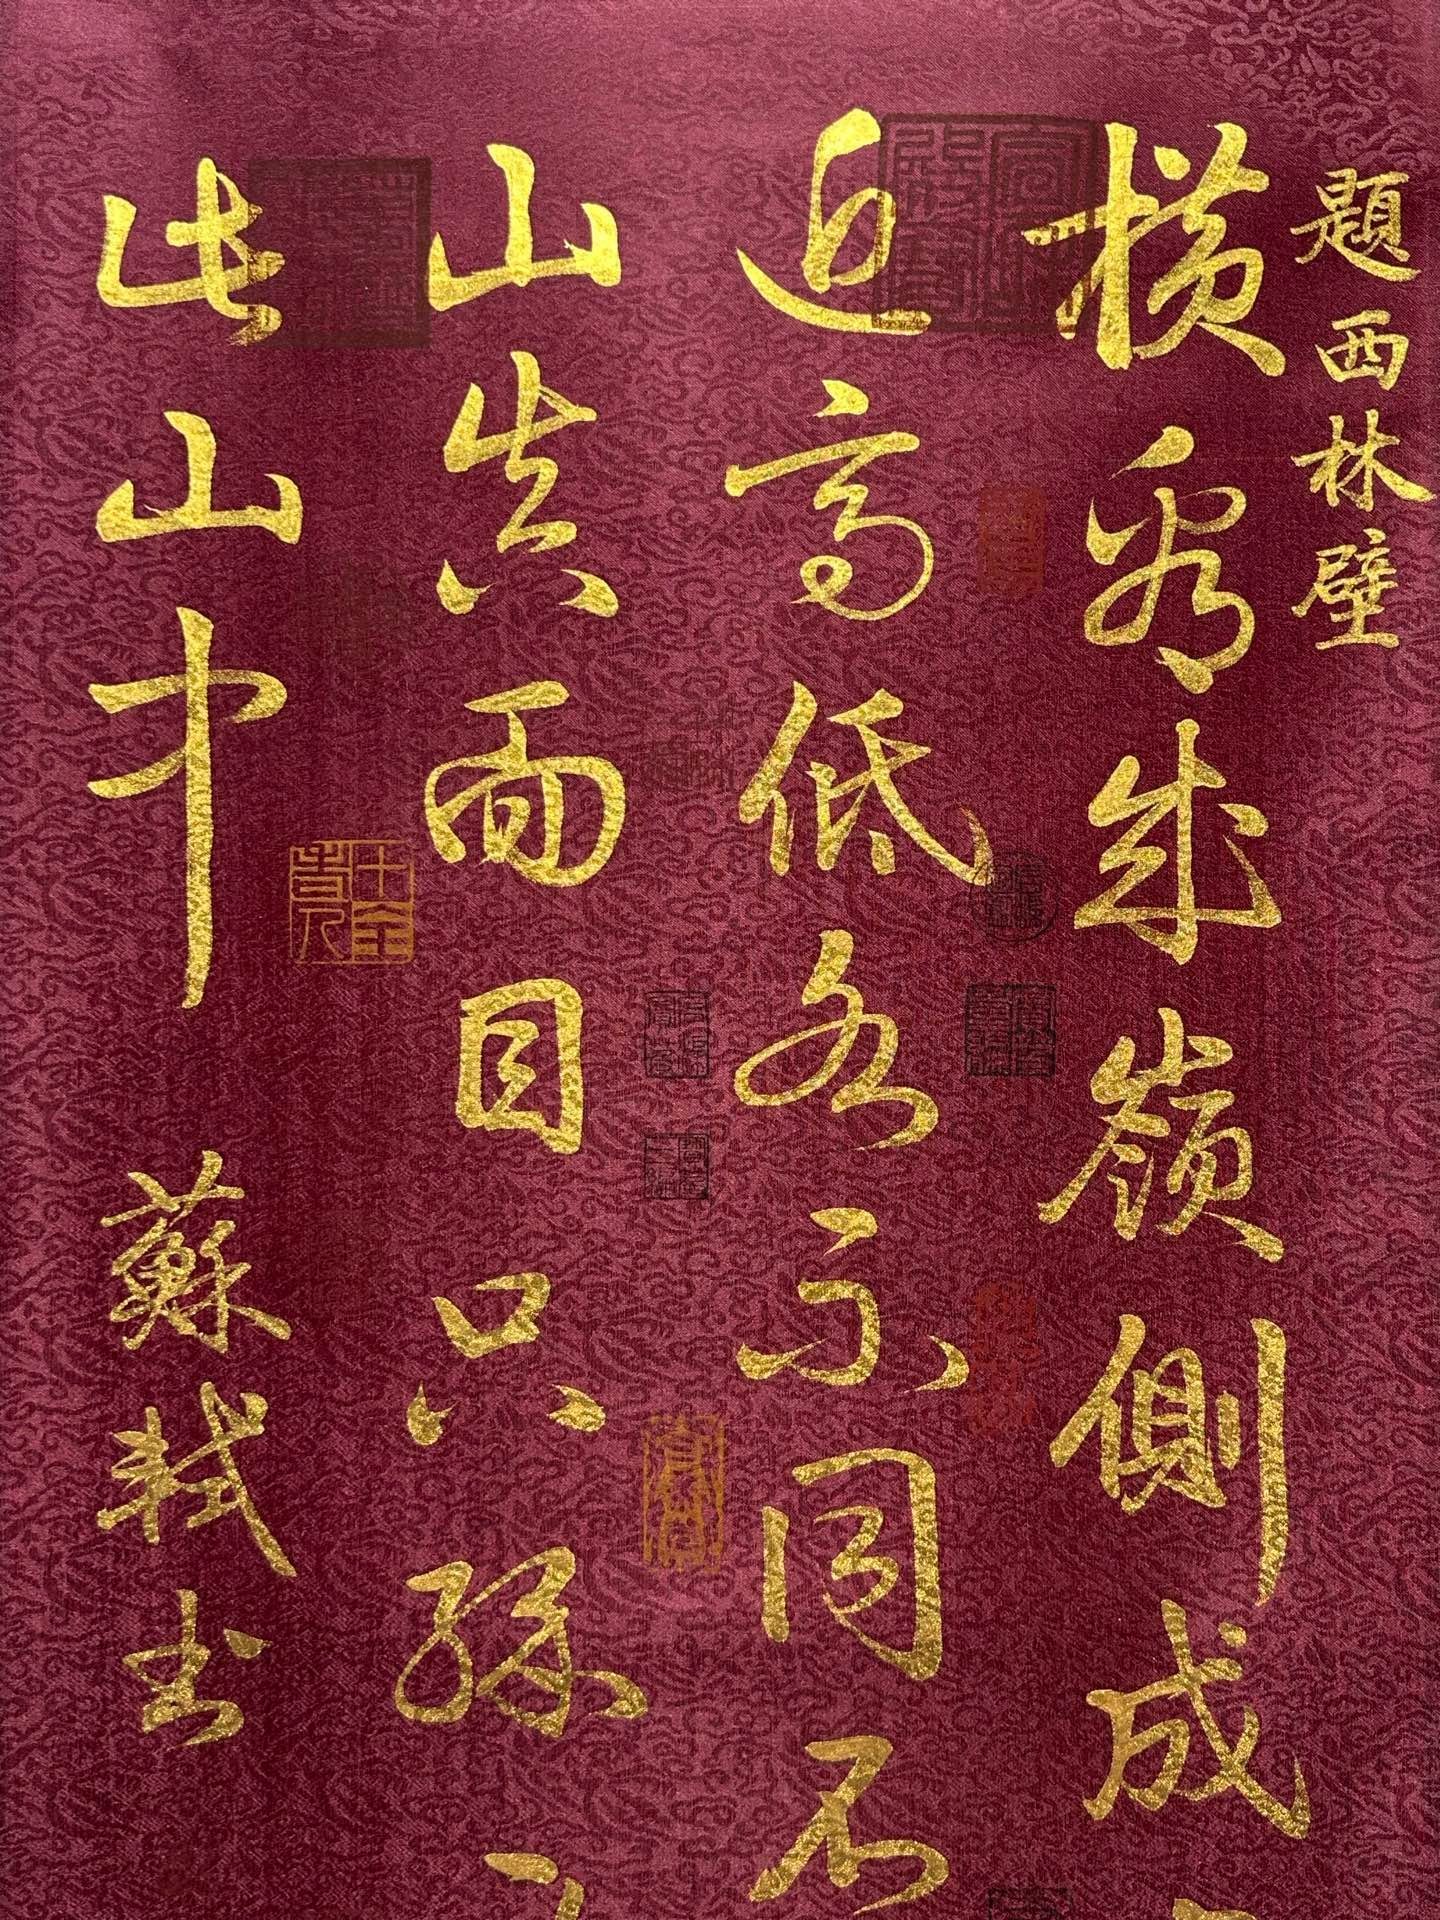 題西林壁
横看成嶺側成
近高低各不同不
山真面目只緣
此山中
蘇軾書
十全老人